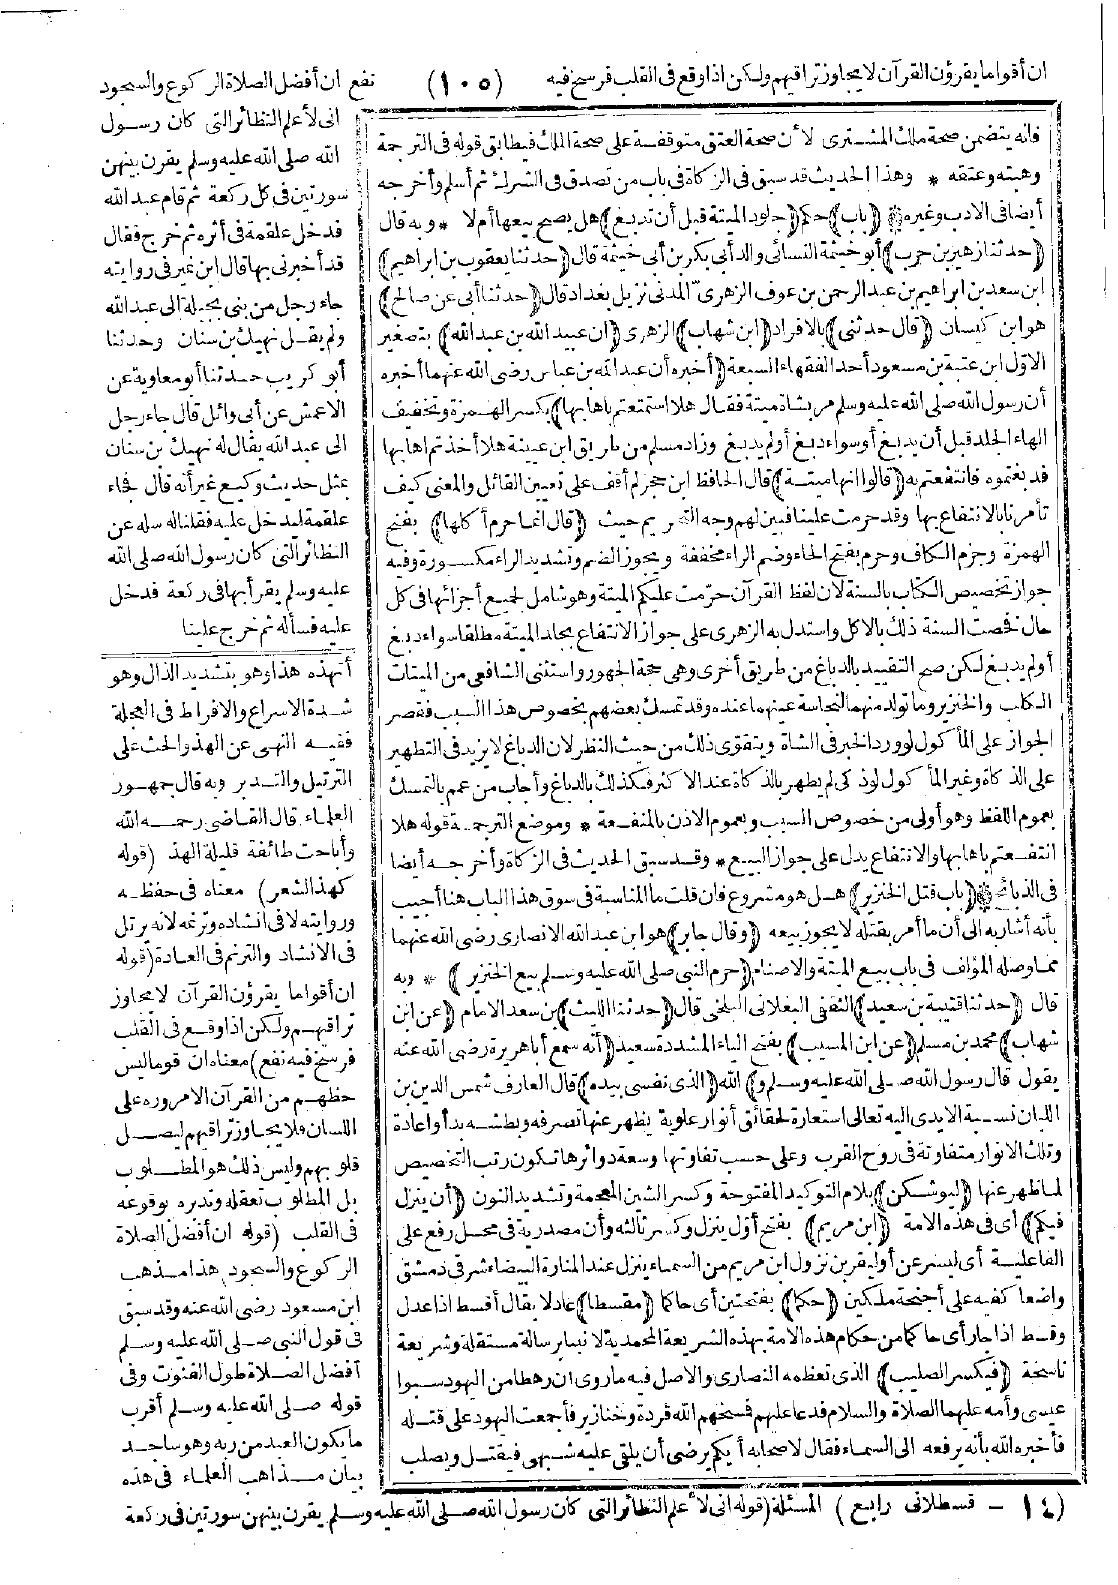 ان أقواما يقرؤن القرآن لا يجاوز تراقيهم ولكن اذا وقع فى القلب فرسخ فيه (١٠٥) نفع ان أفضل الصلاة الركوع والسجود
فانه يتضمن صحة ملك المشترى لأن صحة العتق متوقفة على صحة الملك فيطابق قوله فى الترجمة
وهبته وعتقه * وهذا الحديث قد سبق فى الزكاة فى باب من تصدق فى الشرك ثم أسلم وأخرجه
أيضا فى الادب وغيره ﴿(باب) حكم (جلود الميتة قبل أن تدبغ) هل يصح بيعها أم لا * وبه قال
(حدثنا زهير بن حرب) أبو خيثمة النسائى والد أبى بكر بن أبى خيثمة قال (حدثنا يعقوب بن ابراهيم)
ابن سعد بن ابراهيم بن عبد الرحمن بن عوف الزهرى المدنى نزيل بغداد قال (حدثنا أبى عن صالح)
هو ابن كيسان (قال حدثنى) بالافراد (ابن شهاب) الزهرى (ان عبيد الله بن عبد الله) بتصغير
الاول ابن عتبة بن مسعود أحد الفقهاء السبعة (أخبره أن عبد الله بن عباس رضى الله عنهما أخبره
أن رسول الله صلى الله عليه وسلم مر بشاة ميتة فقال هلا استمتعتم باهابها) بكسر الهمزة وتخفيف
الهاء الجلد قبل أن يدبغ أو سواء دبغ أو لم يدبغ وزاد مسلم من طريق ابن عيينة هلا أخذتم اهابها
فدبغتموه فانتفعتم به (قالوا انها ميتة) قال الحافظ ابن حجر لم أقف على تعيين القائل والمعنى كيف
تأمرنا بالانتفاع بها وقد حرمت علينا فبين لهم وجه التحريم حيث (قال انما حرم أكلها) بفتح
الهمزة وجزم الكاف وحرم بفتح الحاء وضم الراء مخففة ويجوز الضم وتشديد الراء مكسورة وفيه
جواز تخصيص الكتاب بالسنة لان لفظ القرآن حرّمت عليكم الميتة وهو شامل لجميع أجزائها فى كل
حال فخصت السنة ذلك بالاكل واستدل به الزهرى على جواز الانتفاع بجلد الميتة مطلقا سواء دبغ
أو لم يدبغ لكن صح التقييد بالدباغ من طريق أخرى وهى حجة الجمهور واستثنى الشافعى من الميتات
الكلب والخنزير وما تولد منهما لنجاسة عينهما عنده وقد تمسك بعضهم بخصوص هذا السبب فقصر
الجواز على المأكول لورود الخبر فى الشاة ويتقوى ذلك من حيث النظر لان الدباغ لا يزيد فى التطهير
على الذكاة وغير المأكول لو ذكى لم يطهر بالذكاة عند الاكثر فكذلك بالدباغ وأجاب من عمم بالتمسك
بعموم اللفظ وهو أولى من خصوص السبب وبعموم الاذن بالمنفعة * وموضع الترجمة قوله هلا
انتفعتم باهابها والانتفاع يدل على جواز البيع * وقد سبق الحديث فى الزكاة وأخرجه أيضا
فى الذبائح ﴿(باب قتل الخنزير) هل هو مشروع فان قلت ما المناسبة فى سوق هذا الباب هنا أجيب
بأنه أشار به الى أن ما أمر بقتله لا يجوز بيعه (وقال جابر) هو ابن عبد الله الانصارى رضى الله عنهما
مما وصله المؤلف فى باب بيع الميتة والاصنام (حرم النبى صلى الله عليه وسلم بيع الخنزير) * وبه
قال (حدثنا قتيبة بن سعيد) الثقفى البغلانى البلخى قال (حدثنا الليث) بن سعد الامام (عن ابن
شهاب) محمد بن مسلم (عن ابن المسيب) بفتح الياء المشددة سعيد (أنه سمع أبا هريرة رضى الله عنه
يقول قال رسول الله صلى الله عليه وسلم و) الله (الذى نفسى بيده) قال العارف شمس الدين بن
اللبان نسبة الايدى اليه تعالى استعارة لحقائق أنوار علوية يظهر عنها تصرفه وبطشه بدأ واعادة
وتلك الانوار متفاوتة فى روح القرب وعلى حسب تفاوتها وسعة دوائرها تكون رتب التخصيص
لما ظهر عنها (ليوشكن) بلام التوكيد المفتوحة وكسر الشين المعجمة وتشديد النون (أن ينزل
فيكم) أى فى هذه الامة (ابن مريم) بفتح أوّل ينزل وكسر ثالثه وأن مصدرية فى محل رفع على
الفاعلية أى ليسرعن أو ليقربن نزول ابن مريم من السماء ينزل عند المنارة البيضاء شرقى دمشق
واضعا كفيه على أجنحة ملكين (حكما) بفتحتين أى حاكما (مقسطا) عادلا يقال أقسط اذا عدل
وقسط اذا جار أى حاكما من حكام هذه الامة بهذه الشريعة المحمدية لا نبيا برسالة مستقلة وشريعة
ناسخة (فيكسر الصليب) الذى تعظمه النصارى والاصل فيه ما روى ان رهطا من اليهود سبوا
عيسى وأمه عليهما الصلاة والسلام فدعا عليهم فمسخهم الله قردة وخنازير فأجمعت اليهود على قتله
فأخبره الله بأنه يرفعه الى السماء فقال لاصحابه أيكم يرضى أن يلقى عليه شبهى فيقتل ويصلب
انى لأعلم النظائر التى كان رسول
الله صلى الله عليه وسلم يقرن بينهن
سورتين فى كل ركعة ثم قام عبد الله
فدخل علقمة فى أثره ثم خرج فقال
قد أخبرنى بها قال ابن نمير فى روايته
جاء رجل من بنى بجيلة الى عبد الله
ولم يقل نهيك بن سنان وحدثنا
أبو كريب حدثنا أبو معاوية عن
الاعمش عن أبى وائل قال جاء رجل
الى عبد الله يقال له نهيك بن سنان
بمثل حديث وكيع غير أنه قال فجاء
علقمة ليدخل عليه فقلنا له سله عن
النظائر التى كان رسول الله صلى الله
عليه وسلم يقرأ بها فى ركعة فدخل
عليه فسأله ثم خرج علينا
أتهذه هذا وهو بتشديد الذال وهو
شدة الاسراع والافراط فى العجلة
ففيه النهى عن الهذ والحث على
الترتيل والتدبر وبه قال جمهور
العلماء قال القاضى رحمه الله
وأباحت طائفة قليلة الهذ (قوله
كهذ الشعر) معناه فى حفظه
وروايته لا فى انشاده وترنمه لانه يرتل
فى الانشاد والترنم فى العادة (قوله
ان أقواما يقرؤن القرآن لا يجاوز
تراقيهم ولكن اذا وقع فى القلب
فرسخ فيه نفع) معناه ان قوما ليس
حظهم من القرآن الا مروره على
اللسان فلا يجاوز تراقيهم ليصل
قلوبهم وليس ذلك هو المطلوب
بل المطلوب تعقله وتدبره بوقوعه
فى القلب (قوله ان أفضل الصلاة
الركوع والسجود) هذا مذهب
ابن مسعود رضى الله عنه وقد سبق
فى قول النبى صلى الله عليه وسلم
أفضل الصلاة طول القنوت وفى
قوله صلى الله عليه وسلم أقرب
ما يكون العبد من ربه وهو ساجد
بيان مذاهب العلماء فى هذه
(١٤ - قسطلانى رابع) المسئلة (قوله انى لأعلم النظائر التى كان رسول الله صلى الله عليه وسلم يقرن بينهن سورتين فى ركعة